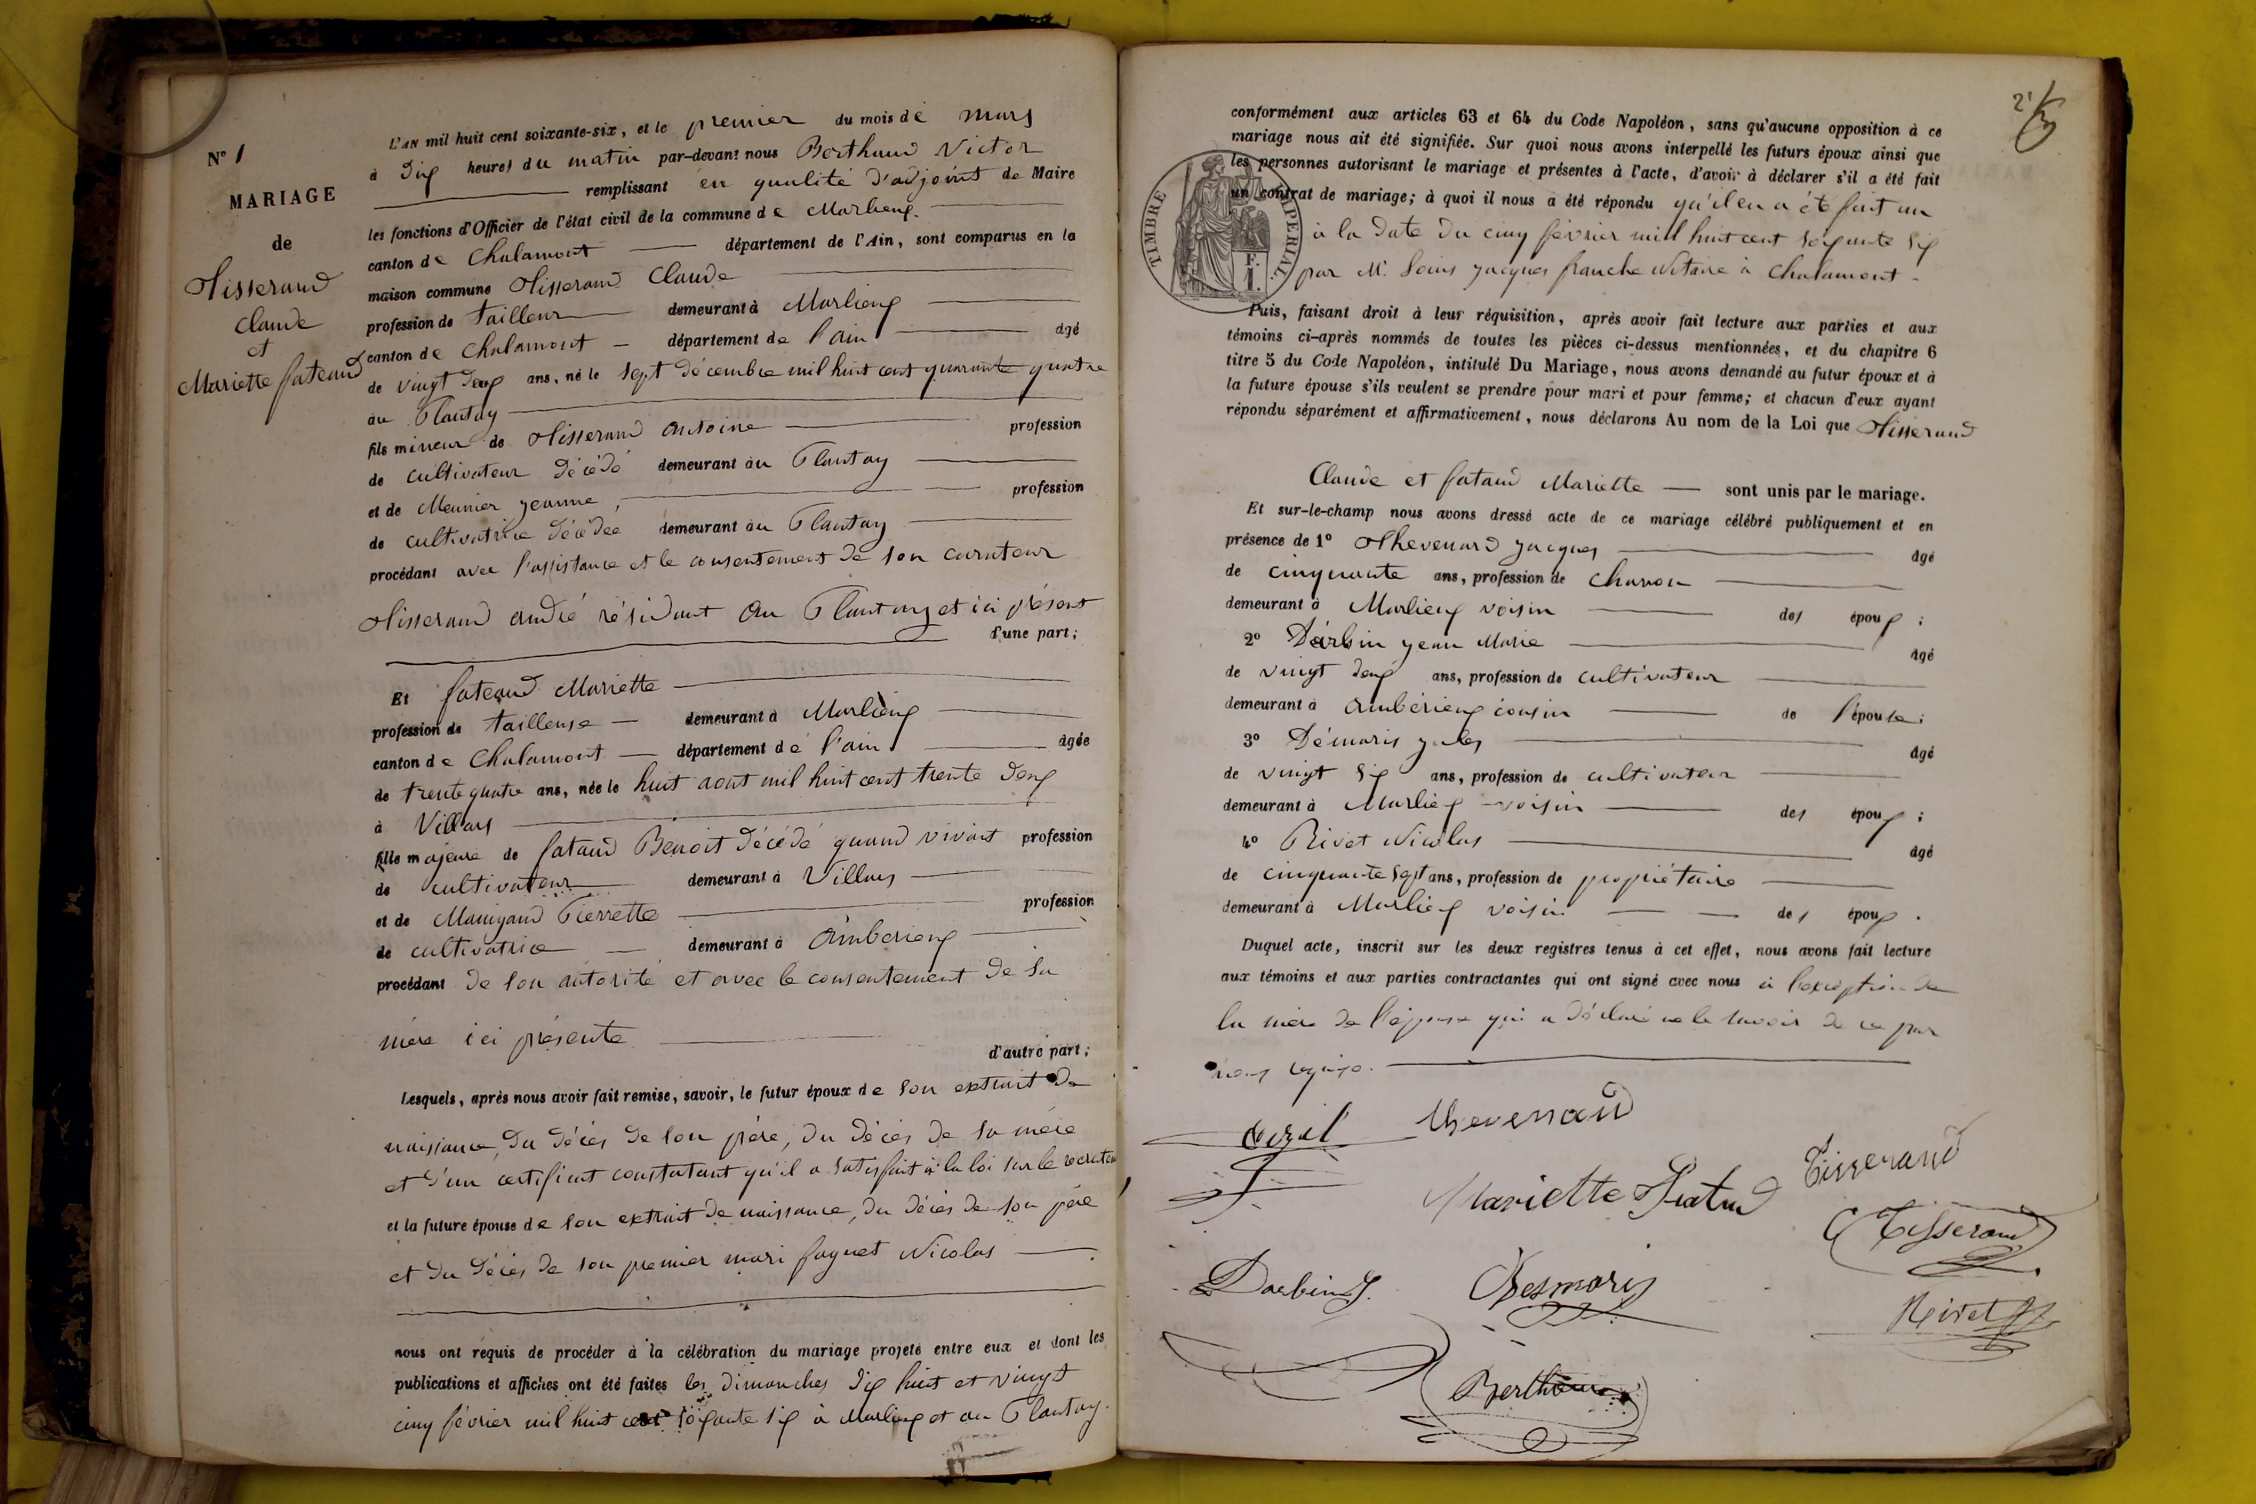 N° 1
MARIAGE
de
Tisserand
Claude
et
Mariette fataud
L'AN mil huit cent soixante-six, et le premier du mois de mars
à dix heures du matin par-devant nous Berthaud Victor
remplissant en qualité d'adjoint de Maire
les fonctions d'Officier de l'état civil de la commune de Marlieux.
canton de Chalamont département de l'Ain, sont comparus en la
maison commune Tisserand Claude
profession de tailleur demeurant à Marlieux
canton de Chalamont département de l'ain âgé
de vingt deux ans, né le sept décembre mil huit cent quarante quatre
au Plantay
fils mineur de Tisserand antoine profession
de cultivateur décédé demeurant au Plantay
et de Meunier jeanne profession
de cultivatrice décédée demeurant au Plantay
procédant avec l'assistance et le consentement de son curateur
Tisserand andré résidant au Plantay et ici présent
d'une part;
Et fataud Mariette
profession de tailleuse demeurant à Marlieux
canton de Chalamont département de l'ain âgée
de trente quatre ans, née le huit aout mil huit cent trente deux
à Villars
fille majeure de fataud Benoit décédé quand vivant profession
de cultivateur demeurant à Villars
et de Manigand Pierrette profession
de cultivatrice demeurant à Ambérieux
procédant de son autorité et avec le consentement de sa
mère ici présente
d'autre part;
Lesquels, après nous avoir fait remise, savoir, le futur époux de son extrait de
naissance, du décès de son père, du décès de sa mère
et d'un certificat constatant qu'il a satisfait à la loi sur le recrutem
et la future épouse de son extrait de naissance, du décès de son père
et du décès de son premier mari faguet Nicolas
nous ont requis de procéder à la célébration du mariage projeté entre eux et dont les
publications et affiches ont été faites les dimanches dix huit et vingt
cinq février mil huit cent soixante six à Marlieux et au Plantay.
conformément aux articles 63 et 64 du Code Napoléon, sans qu'aucune opposition à ce
mariage nous ait été signifiée. Sur quoi nous avons interpellé les futurs époux ainsi que
les personnes autorisant le mariage et présentes à l'acte, d'avoir à déclarer s'il a été fait
un contrat de mariage; à quoi il nous a été répondu qu'il en a été fait un
à la date du cinq février mill huit cent soixante six
par Mr. Louis jacques franche Notaire à Chalamont
TIMBRE IMPERIAL
Puis, faisant droit à leur réquisition, après avoir fait lecture aux parties et aux
témoins ci-après nommés de toutes les pièces ci-dessus mentionnées, et du chapitre 6
titre 5 du Code Napoléon, intitulé Du Mariage, nous avons demandé au futur époux et à
la future épouse s'ils veulent se prendre pour mari et pour femme; et chacun d'eux ayant
répondu séparément et affirmativement, nous déclarons Au nom de la Loi que Tisserand
Claude et fataud Mariette sont unis par le mariage.
Et sur-le-champ nous avons dressé acte de ce mariage célébré publiquement et en
présence de 1° Thevenard jacques âgé
de cinquante ans, profession de charron
demeurant à Marlieux voisin des époux;
2° Darbin jean Marie âgé
de vingt deux ans, profession de cultivateur
demeurant à ambérieux cousin de l'épouse;
3° Démaris jules âgé
de vingt six ans, profession de cultivateur
demeurant à Marlieux voisin des époux;
4° Rivet Nicolas âgé
de cinquante sept ans, profession de propriétaire
demeurant à Marlieux voisin des époux.
Duquel acte, inscrit sur les deux registres tenus à cet effet, nous avons fait lecture
aux témoins et aux parties contractantes qui ont signé avec nous à l'exception de
la mère de l'épouse qui a déclaré ne le savoir de ce par
nous requise.
thevenard
Tisserand
Mariette Fatud
C Tisserand
Darbin J.
Desmaris
Rivet
Berthaud